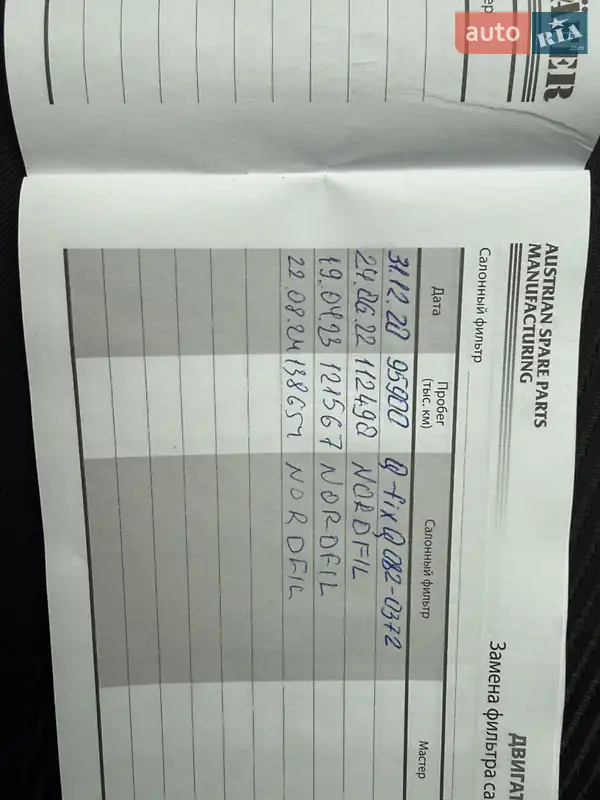 auto RIA .com
AUSTRIAN SPARE PARTS
MANUFACTURING
ДВИГАТ
Замена фильтра са
Салонный фильтр
Дата Пробег (тыс. км) Салонный фильтр Мастер
31.12.20 95900 Q-fix Q082-0372
24.06.22 112490 NORDFIL
19.04.23 121567 NORDFIL
22.08.24 138654 NORDFIL